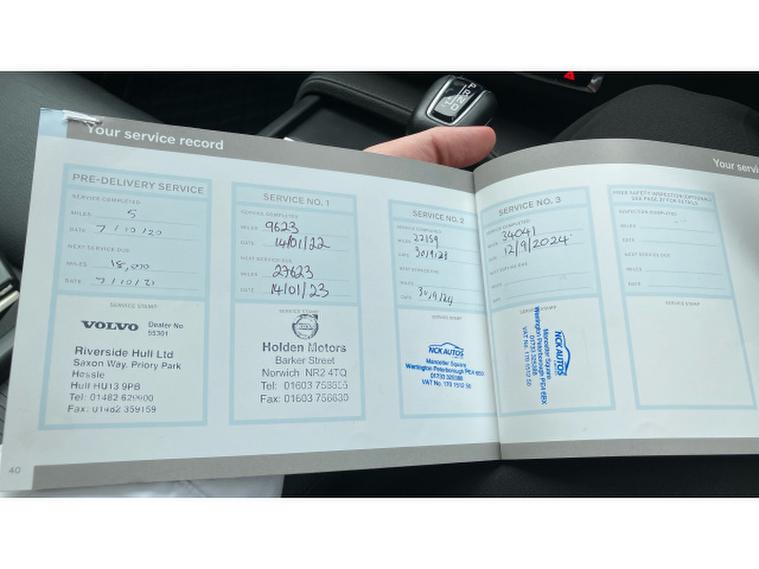 Your service record
PRE-DELIVERY SERVICE
SERVICE COMPLETED
MILES 5
DATE 7/10/20
NEXT SERVICE DUE
MILES 18,000
DATE 7/10/21
SERVICE STAMP
VOLVO Dealer No
Riverside Hull Ltd
Saxon Way, Priory Park
Hessle
Hull HU13 9PB
Tel: 01482 629900
Fax: 01482 359159
40
SERVICE NO. 1
SERVICE COMPLETED
MILES 9623
DATE 14/01/22
NEXT SERVICE DUE
MILES 27623
DATE 14/01/23
SERVICE STAMP
Holden Motors
Barker Street
Norwich NR2 4TQ
Tel: 01603
Fax: 01603
SERVICE NO. 2
SERVICE COMPLETED
MILES 22159
DATE 30/9/23
NEXT SERVICE DUE
MILES
DATE 30/9/24
SERVICE STAMP
NCK AUTOS
Square
Werrington Peterborough PE4
VAT No. 170 1512 50
Your servi
SERVICE NO. 3
SERVICE COMPLETED
MILES 34041
DATE 12/9/2024
NEXT SERVICE DUE
MILES
DATE
NCK AUTOS
Square
Werrington Peterborough PE4 6BX
VAT No. 170 1512 50
SEE PAGE 37 FOR DETAILS
INSPECTION COMPLETED
MILES
DATE
NEXT SERVICE DUE
MILES
DATE
SERVICE STAMP
P
R
N
D